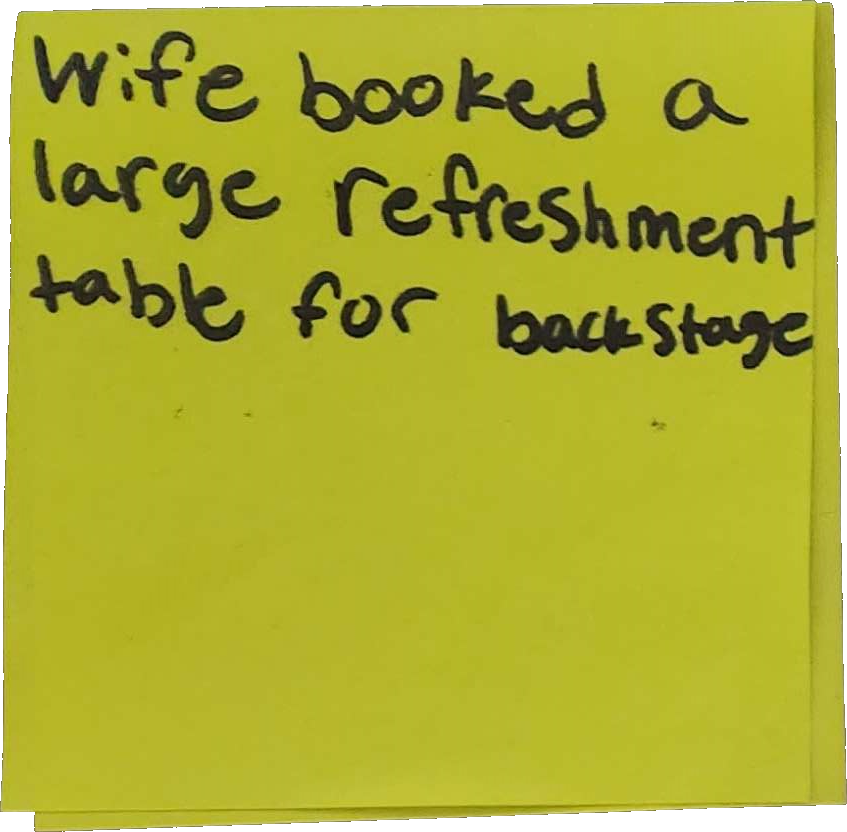 Wife booked a
large refreshment
table for backstage